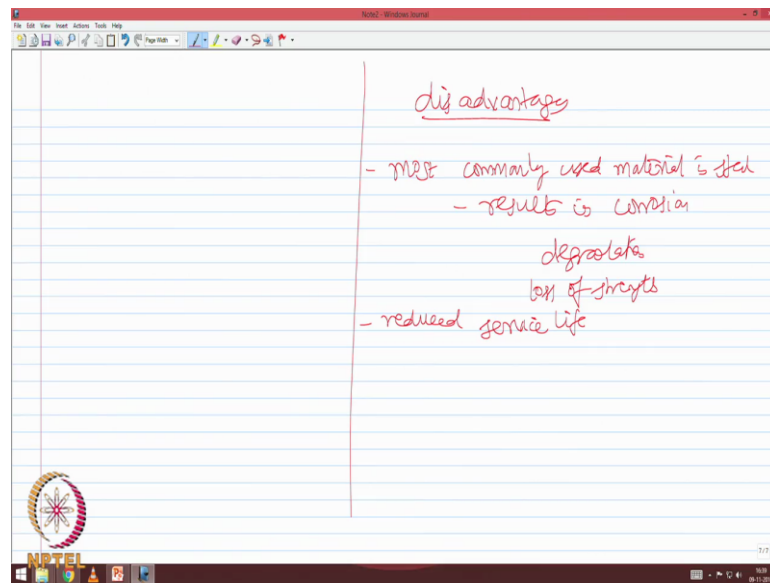 Note2 - Windows Journal
File Edit View Insert Actions Tools Help
Page Width
disadvantages
- most commonly used material is steel
- results in corrosion
degradation
loss of strength
- reduced service life
NPTEL
7/7
16:39